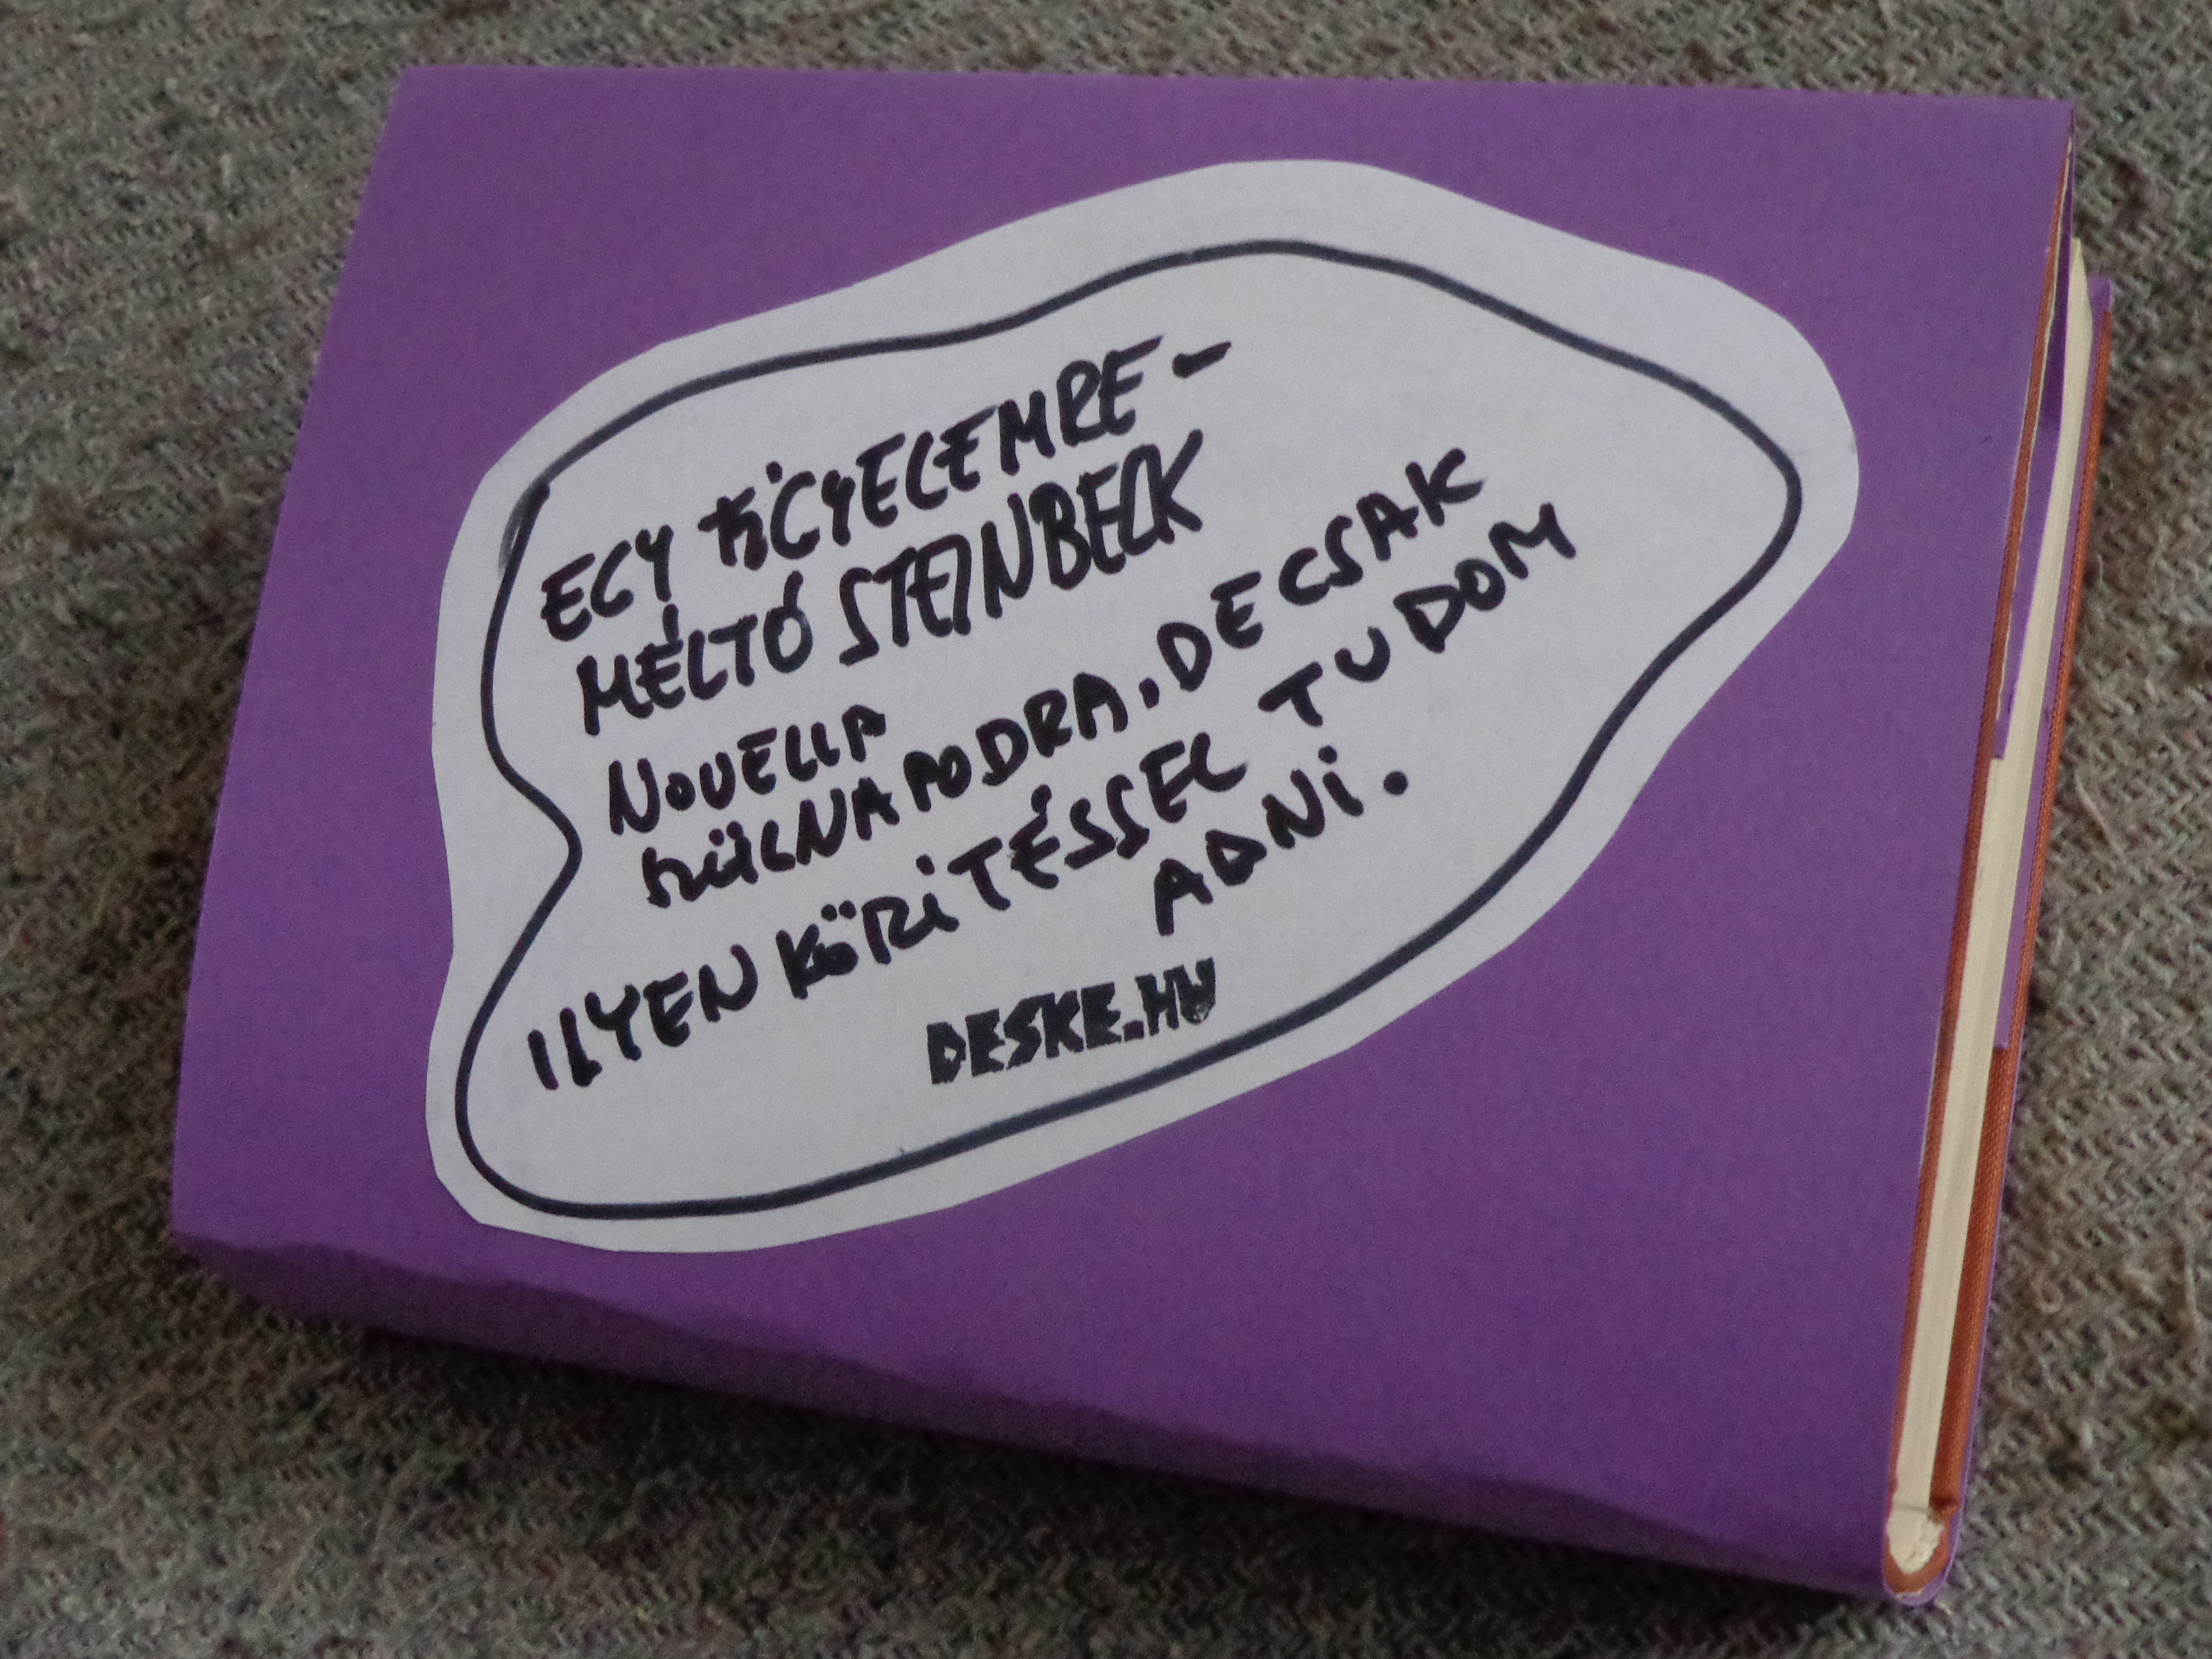 EGY FIGYELEMRE-
MÉLTÓ STEINBECK
NOVELLA
HÜLNAPODRA. DE CSAK
ILYEN KÖRITÉSSEL TUDOM
ADNI.
DESKE.HU